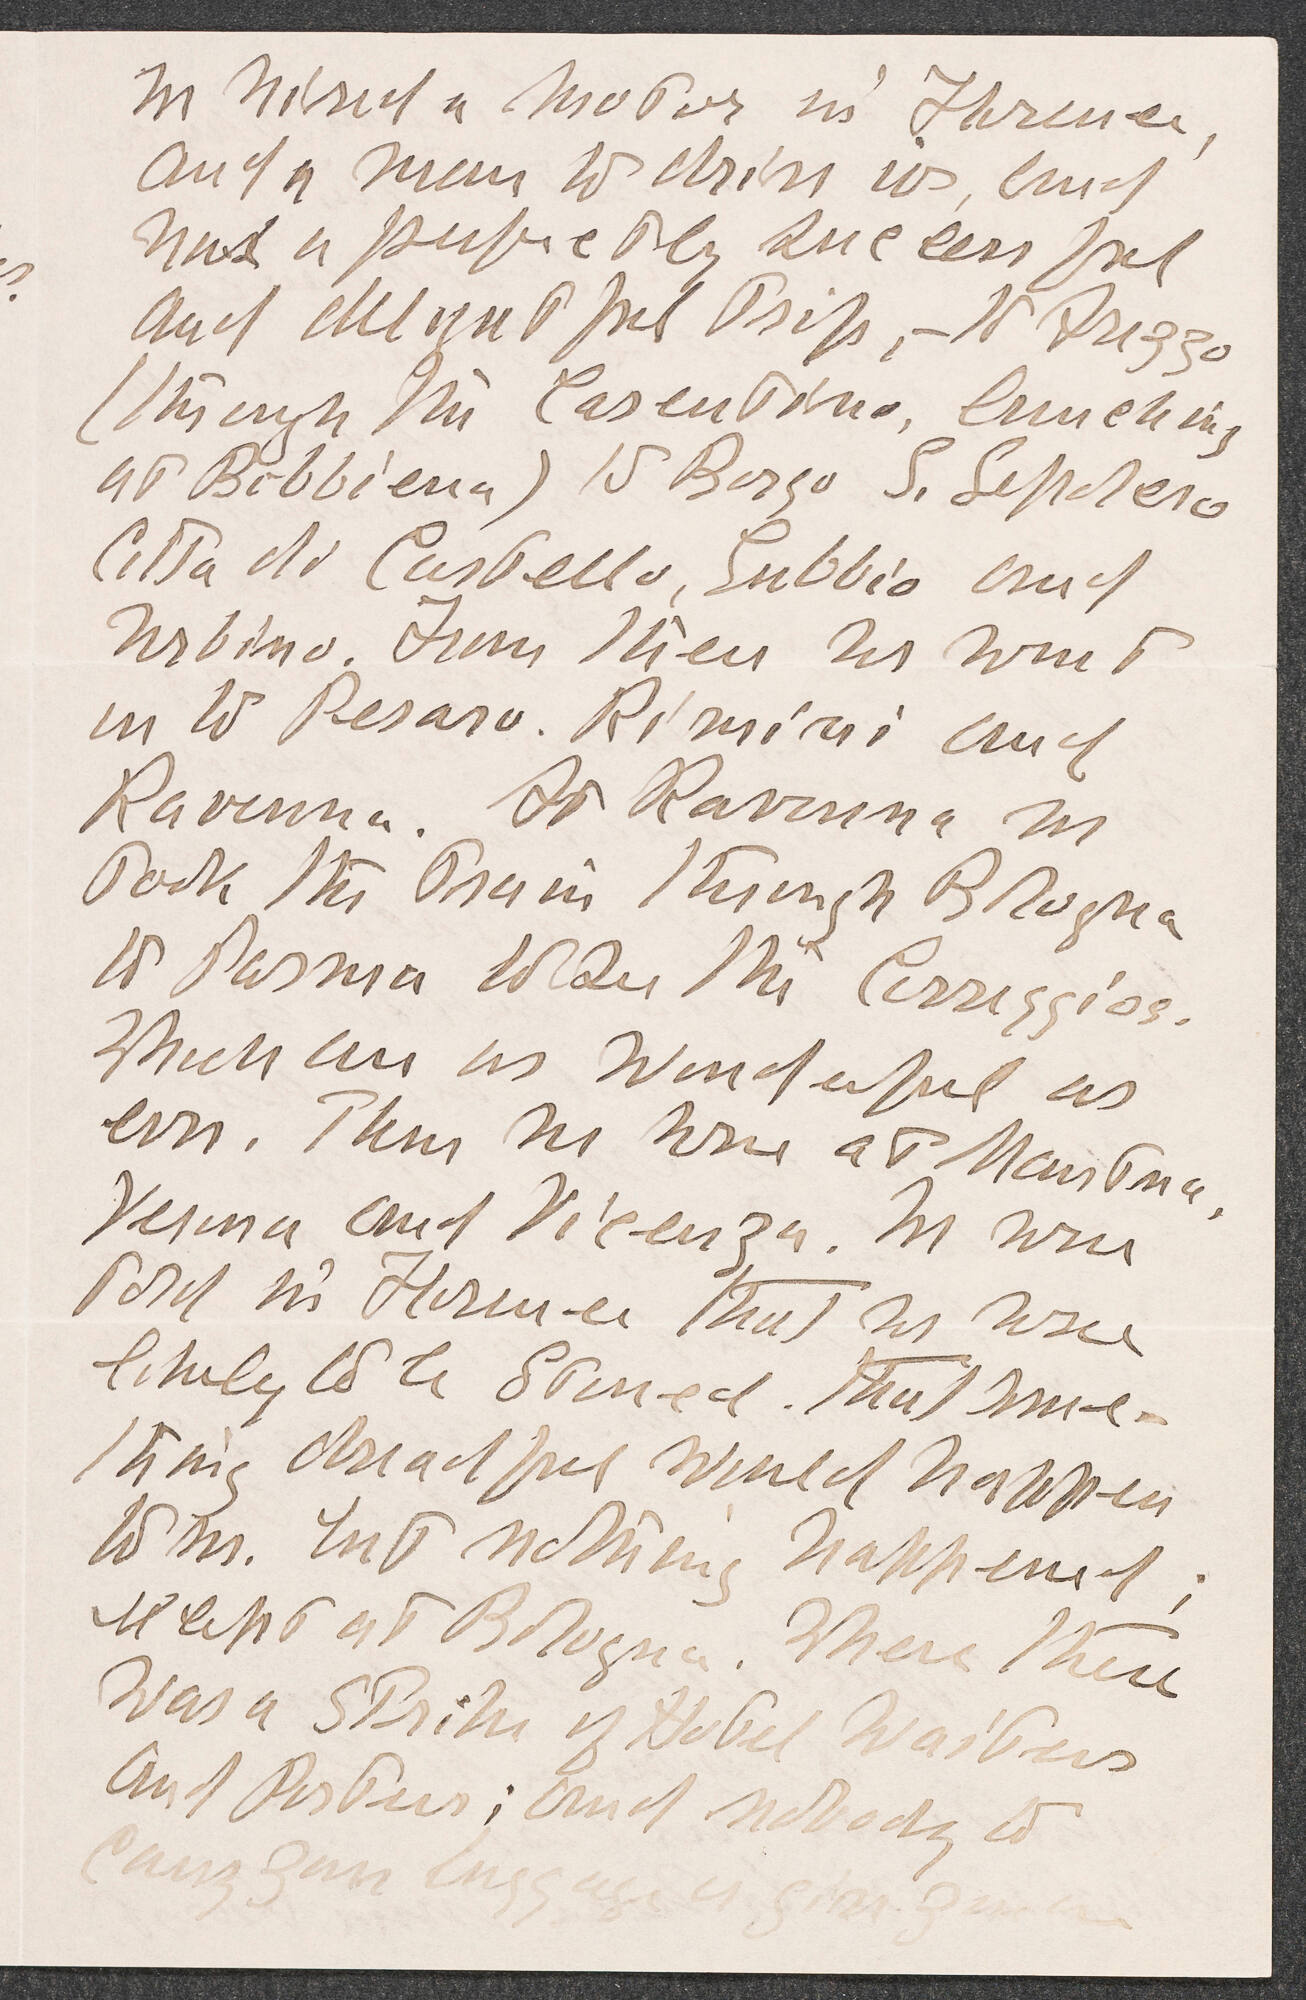 We hired a motor in Florence,
and a man to drive us, and
had a perfectly successful
and delightful trip, – to Arezzo
(through the Casentino, lunching
at Bibbiena) to Borgo S. Sepolcro
Citta di Castello, Gubbio and
Urbino. From there we went
on to Pesaro. Rimini and
Ravenna. At Ravenna we
took the train through Bologna
to Parma to see the Correggios.
Which are as wonderful as
ever. Then we were at Mantua,
Verona and Vicenza. We were
told in Florence that we were
likely to be stoned. that some-
thing dreadful would happen
to us. but nothing happened;
except at Bologna. Where there
was a strike of Hotel Waiters
and Porters; and nobody to
carry your luggage or give you a